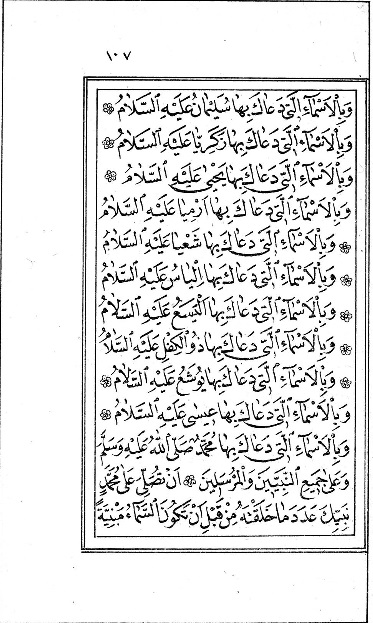 ١٠٧
وَبِالْاَسْمَاءِ الَّتِى دَعَاكَ بِهَا سُلَيْمَانُ عَلَيْهِ السَّلَامُ
وَبِالْاَسْمَاءِ الَّتِى دَعَاكَ بِهَا زَكَرِيَّا عَلَيْهِ السَّلَامُ
وَبِالْاَسْمَاءِ الَّتِى دَعَاكَ بِهَا يَحْيٰى عَلَيْهِ السَّلَامُ
وَبِالْاَسْمَاءِ الَّتِى دَعَاكَ بِهَا اَرْمِيَا عَلَيْهِ السَّلَامُ
وَبِالْاَسْمَاءِ الَّتِى دَعَاكَ بِهَا شَعْيَا عَلَيْهِ السَّلَامُ
وَبِالْاَسْمَاءِ الَّتِى دَعَاكَ بِهَا اِلْيَاسُ عَلَيْهِ السَّلَامُ
وَبِالْاَسْمَاءِ الَّتِى دَعَاكَ بِهَا الْيَسَعُ عَلَيْهِ السَّلَامُ
وَبِالْاَسْمَاءِ الَّتِى دَعَاكَ بِهَا ذُو الْكِفْلِ عَلَيْهِ السَّلَامُ
وَبِالْاَسْمَاءِ الَّتِى دَعَاكَ بِهَا يُوشَعُ عَلَيْهِ السَّلَامُ
وَبِالْاَسْمَاءِ الَّتِى دَعَاكَ بِهَا عِيسٰى عَلَيْهِ السَّلَامُ
وَبِالْاَسْمَاءِ الَّتِى دَعَاكَ بِهَا مُحَمَّدٌ صَلَّى اللهُ عَلَيْهِ وَسَلَّمَ
وَعَلٰى جَمِيعِ النَّبِيِّينَ وَالْمُرْسَلِينَ اَنْ تُصَلِّىَ عَلٰى مُحَمَّدٍ
نَبِيِّكَ عَدَدَ مَا خَلَقْتَهُ مِنْ قَبْلِ اَنْ تَكُونَ السَّمَاءُ مَبْنِيَّةً